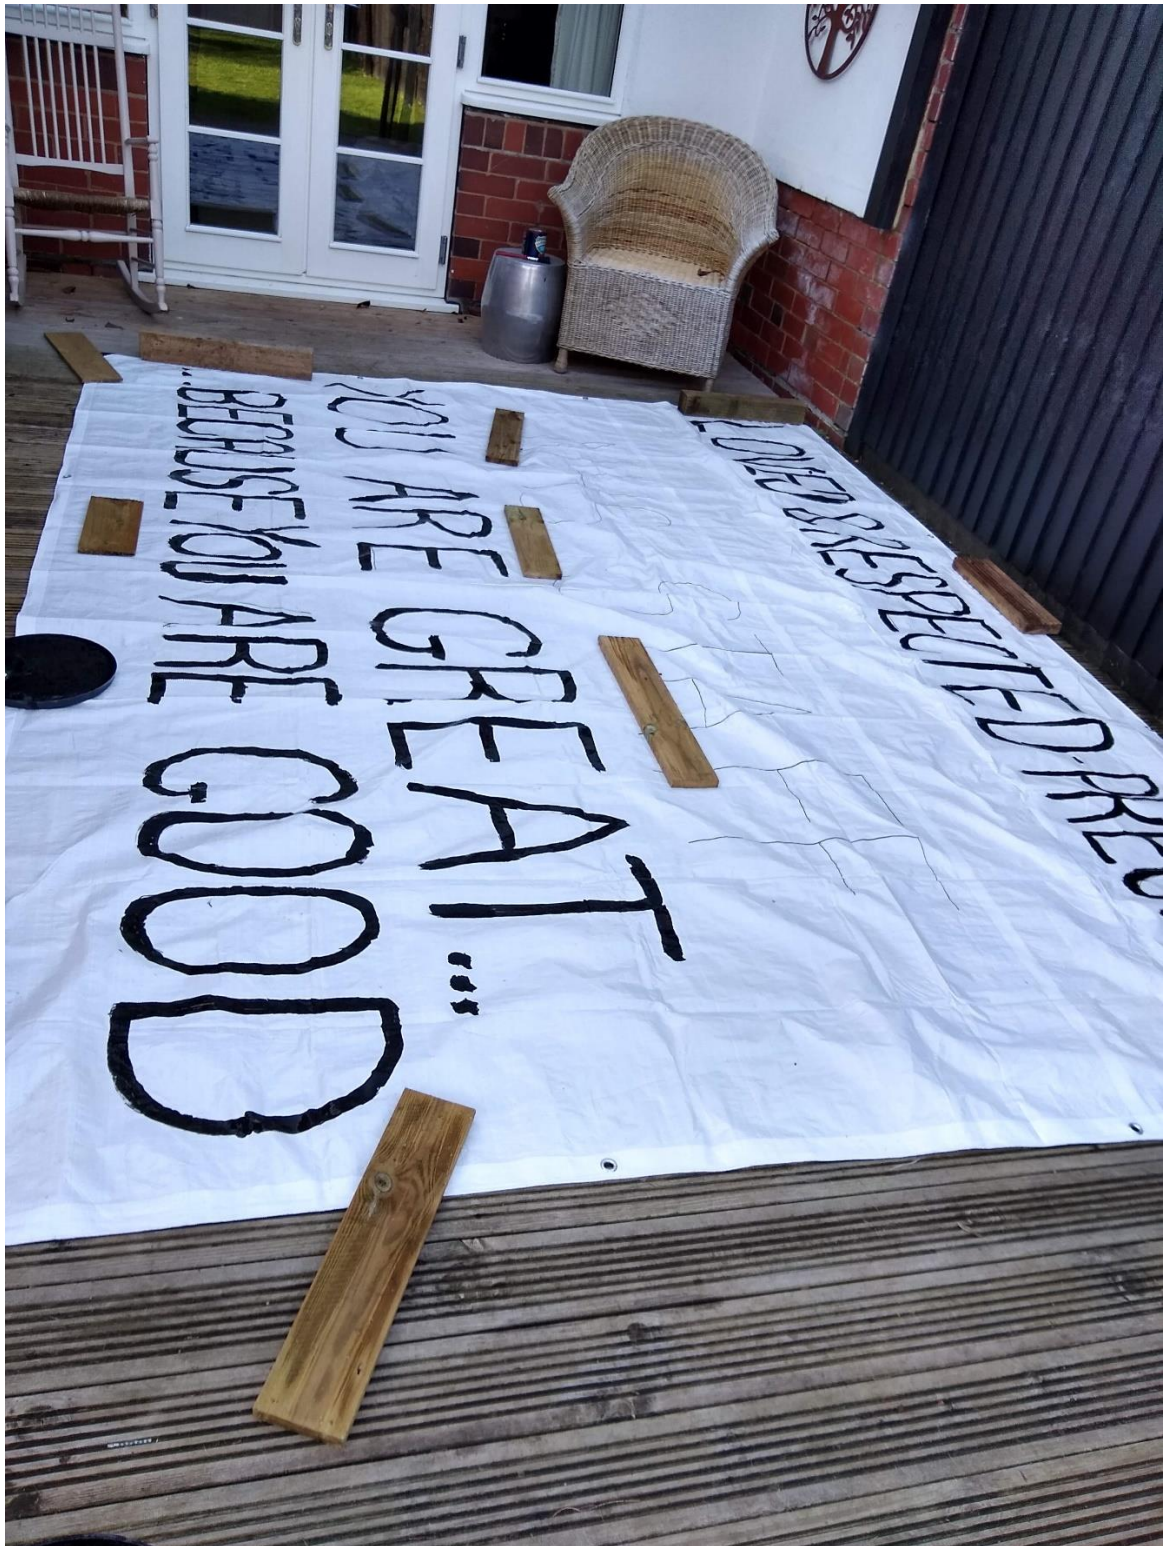 LOVED & RESPECTED-PREC
YOU ARE GREAT...
...BECAUSE YOU ARE GOOD